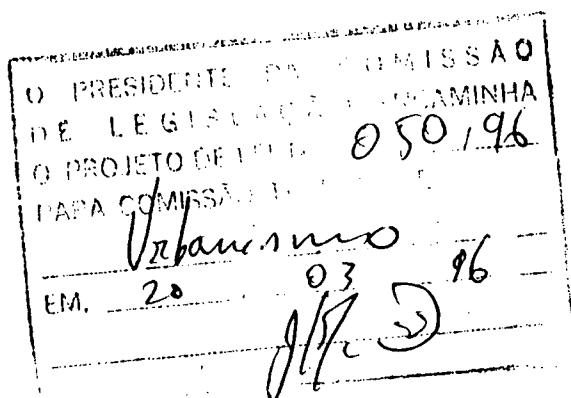 O PRESIDENTE DA COMISSÃO
DE LEGISLAÇÃO ENCAMINHA
O PROJETO DE LEI 050/96
PARA COMISSÃO
Urbanismo
EM, 20 03 96